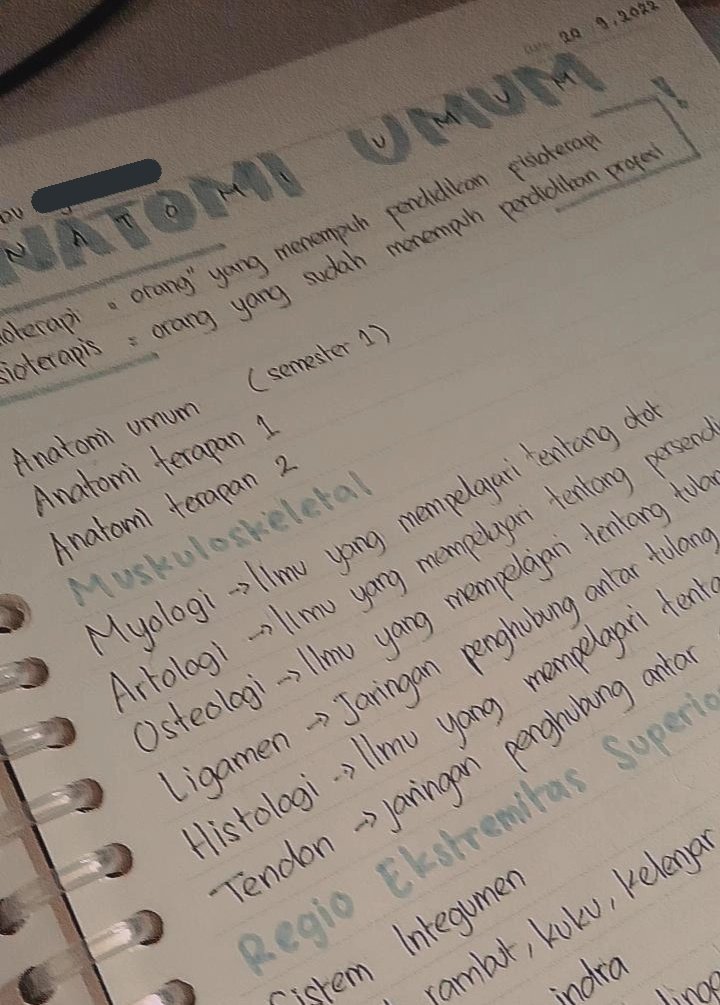 20 9, 2022
NATOMI UMUM
N A T O M I U M U M
ioterapi = orang" yang menempuh pendidikan fisioterapi
sioterapis = orang yang sudah menempuh pendidikan profesi
!
Anatomi umum (semester 1)
Anatomi terapan 1
Anatomi terapan 2
Muskuloskeletal
Myologi → Ilmu yang mempelajari tentang otot
Artologi → Ilmu yang mempelajari tentang persendi
Osteologi → Ilmu yang mempelajari tentang tulan
Ligamen → Jaringan penghubung antar tulang
Histologi → Ilmu yang mempelajari tenta
Tendon → jaringan penghubung antar
Regio Ekstremitas Superio
Sistem Integumen
rambut, kuku, kelenjar
indra